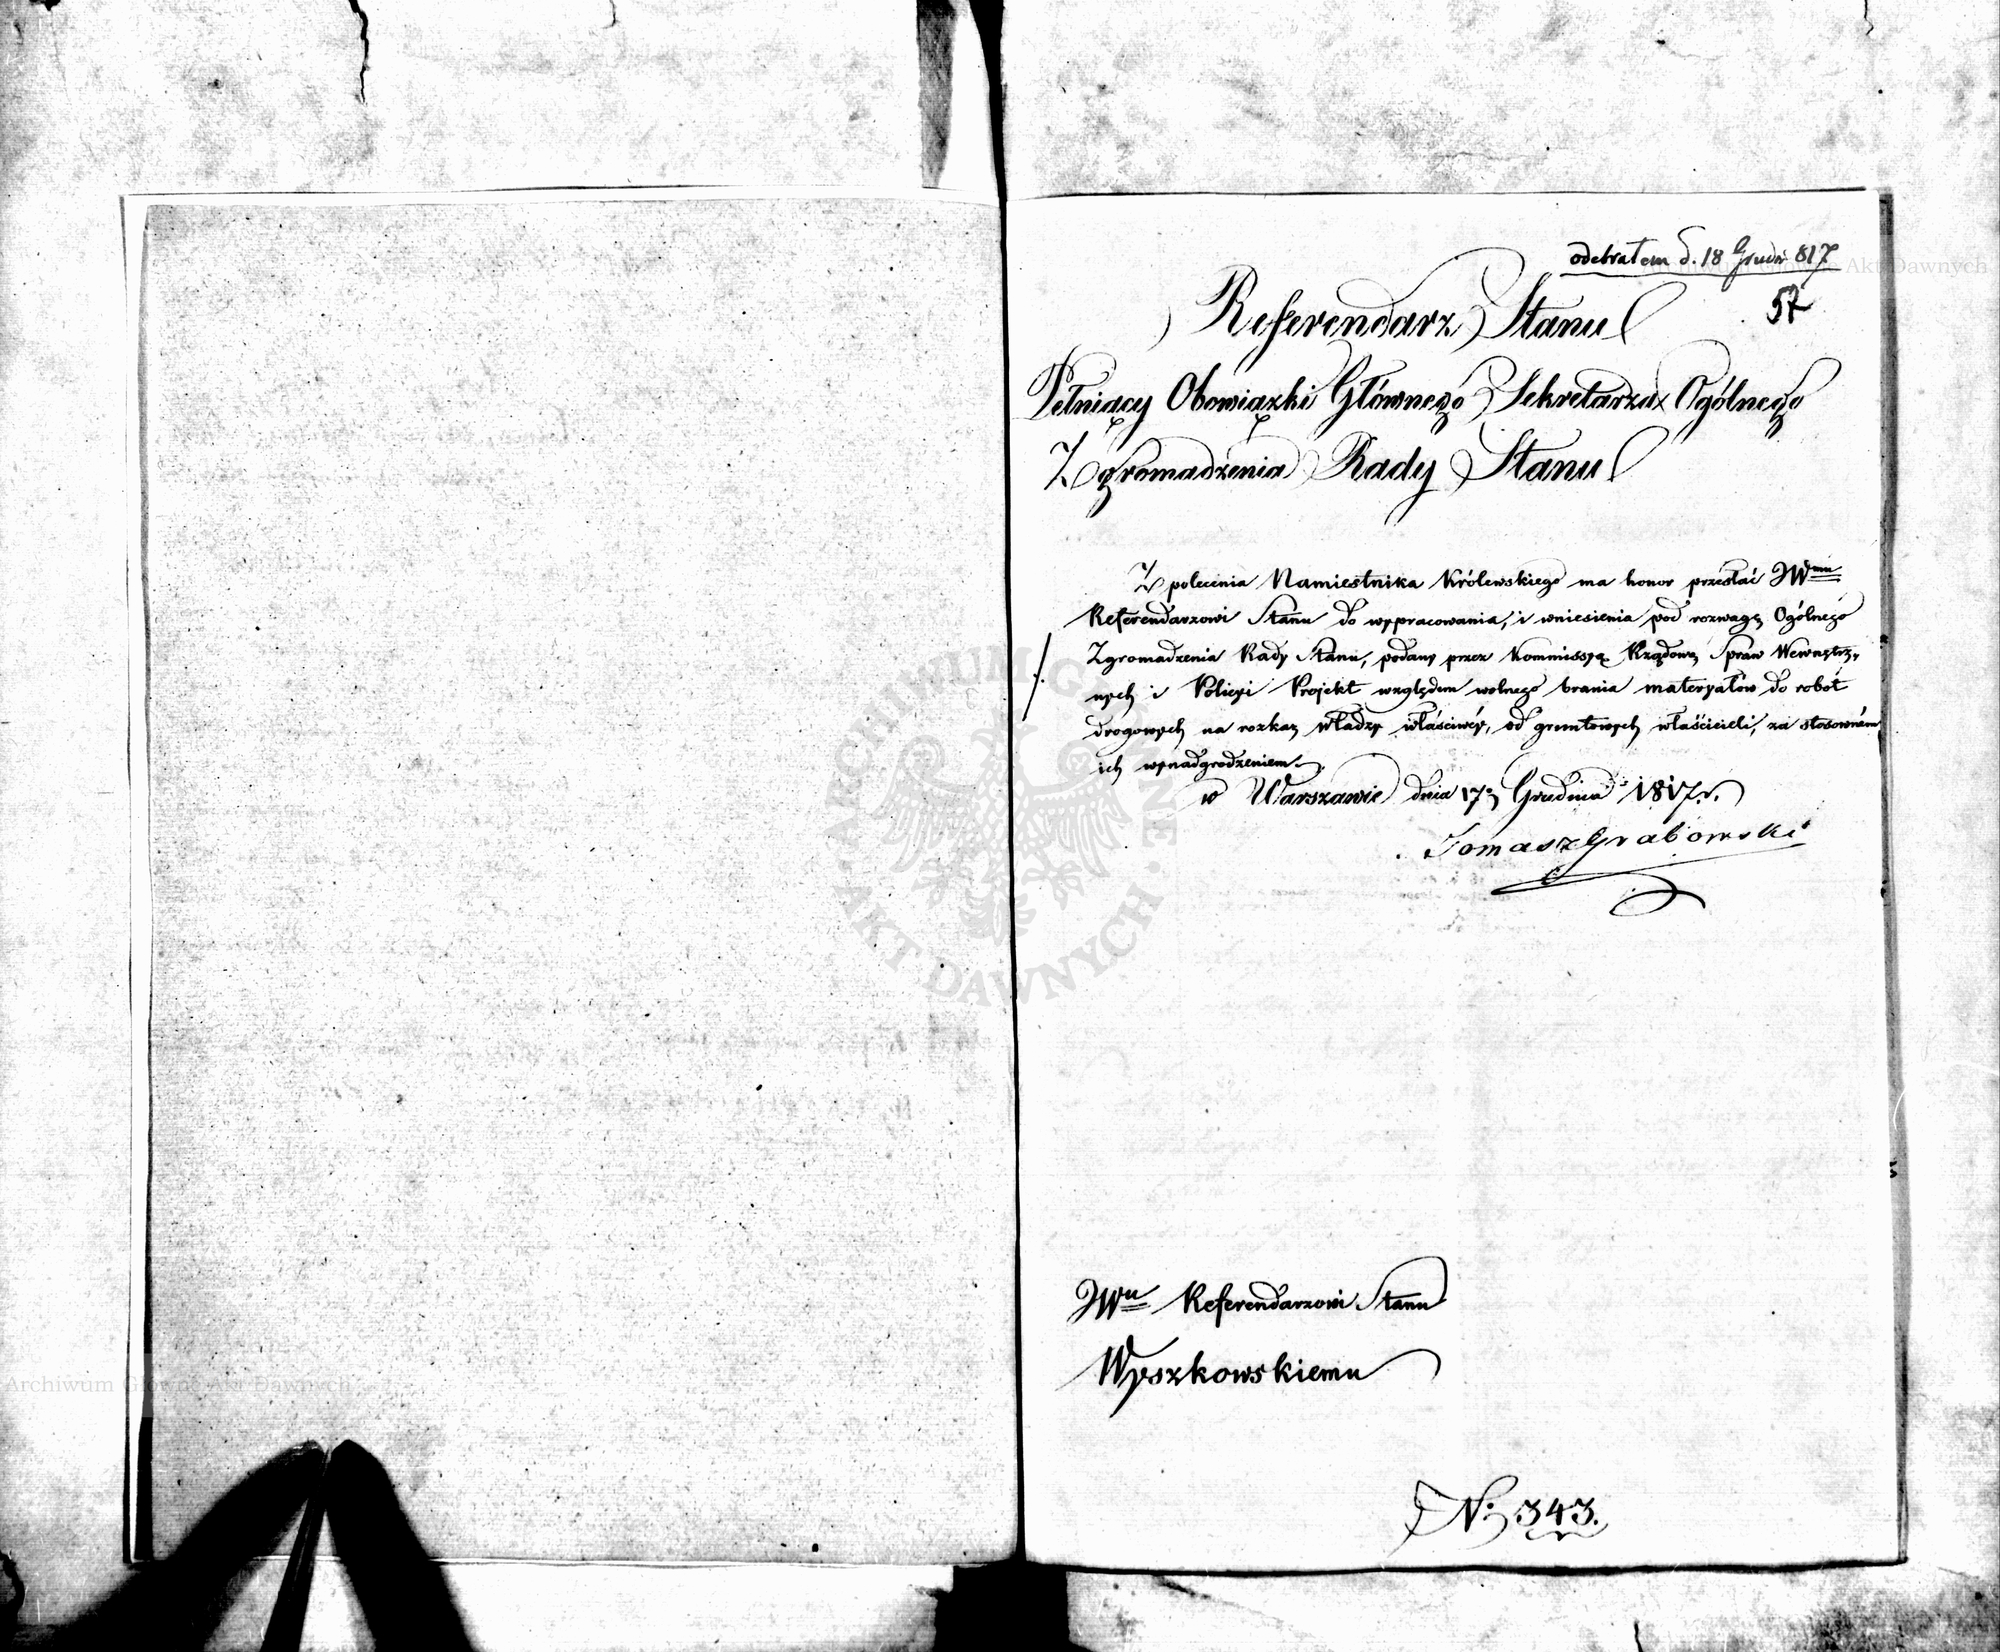 odebrałem d. 18 Grudn 817
57
Referendarz Stanu
Pełniący Obowiązki Głównego Sekretarza Ogólnego
Zgromadzenia Rady Stanu
Z polecenia Namiestnika Królewskiego ma honor przesłać JWmu
Referendarzowi Stanu do wypracowania, i wniesienia pod rozwagę Ogólnego
Zgromadzenia Rady Stanu, podany przez Kommissyą Rządową Spraw Wewnętrz-
nych i Policyi Projekt względem wolnego brania materyałów do robót
drogowych na rozkaz władzy właściwéy, od gruntowych właścicieli, za stosowném
ich wynadgrodzeniem.
w Warszawie dnia 17 Grudnia 1817 r.
Tomasz Grabowski
JWu Referendarzowi Stanu
Wyszkowskiemu
N: 343.
ARCHIWUM GŁÓWNE AKT DAWNYCH
Archiwum Główne Akt Dawnych
Archiwum Główne Akt Dawnych